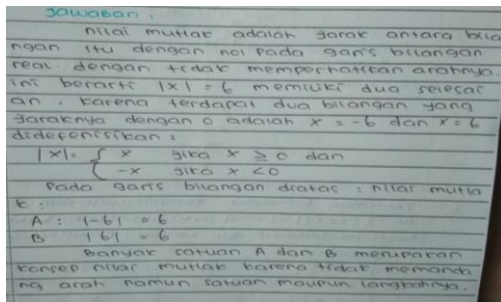 Jawaban :
Nilai mutlak adalah jarak antara bila
ngan itu dengan nol pada garis bilangan
real. dengan tidak memperhatikan arahnya
ini berarti |x| = 6 memiliki dua selesai
an. karena terdapat dua bilangan yang
jaraknya dengan 0 adalah x = -6 dan x = 6
didefenisikan :
|x|= { x jika x ≥ 0 dan
-x jika x < 0
Pada garis bilangan diatas : nilai mutla
k :
A : |-6| = 6
B |6| = 6
Banyak satuan A dan B merupakan
konsep nilai mutlak karena tidak memanda
ng arah namun satuan maupun langkahnya.